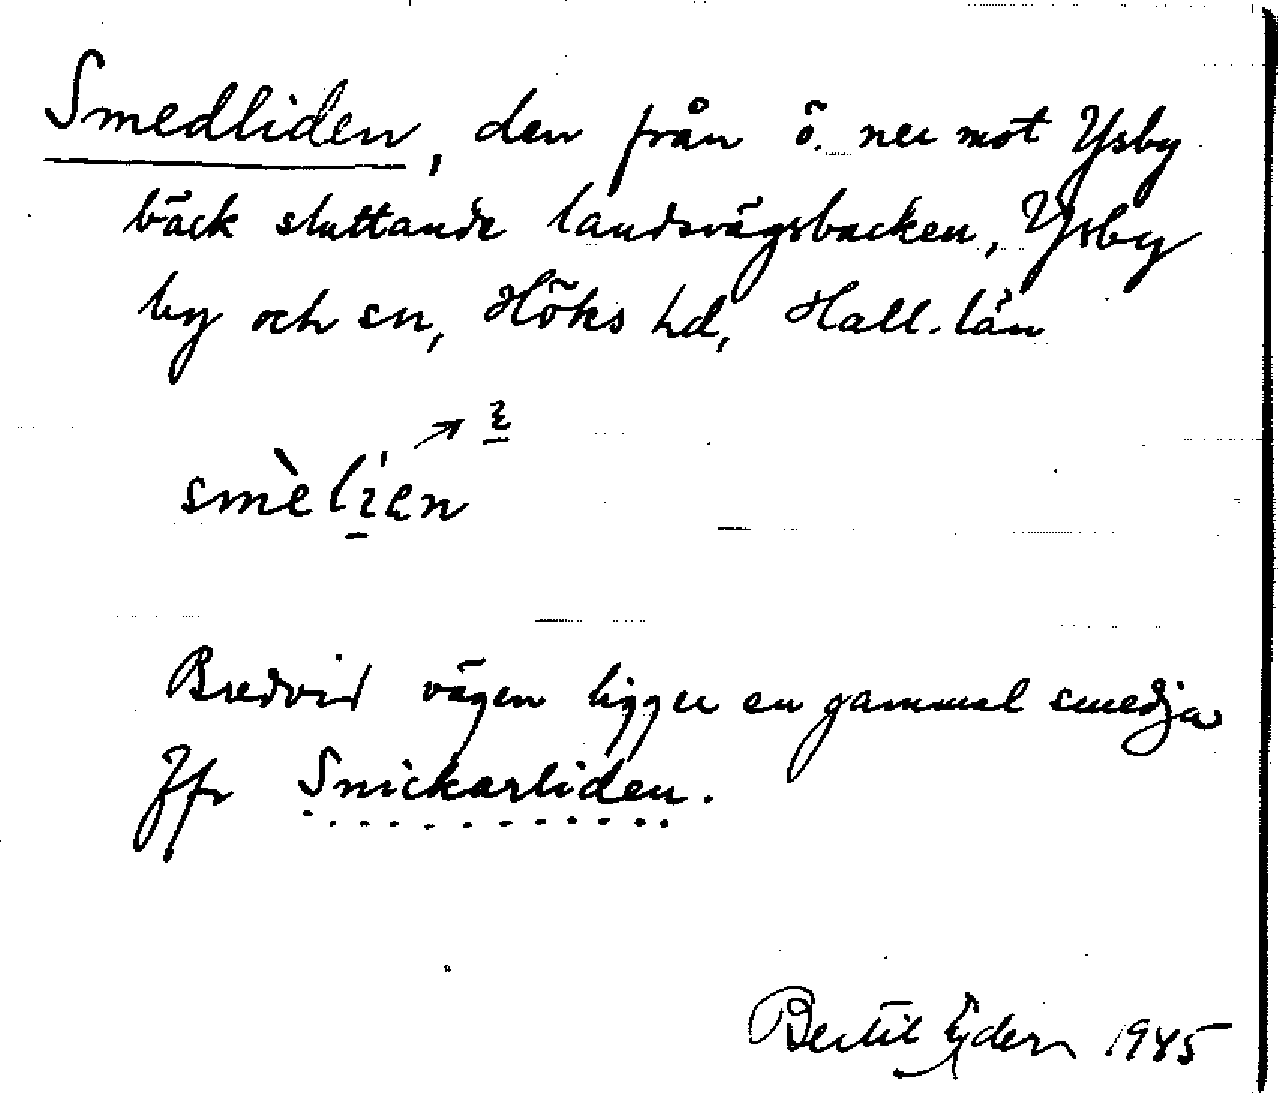 Smedliden, den från ö. ner mot Ysby
bäck sluttande landsvägsbacken, Ysby
by och sn, Höks hd, Hall. län
smèlien
Bredvid vägen ligger en gammal smedja
Jfr Snickarliden.
Bertil Ejder 1945